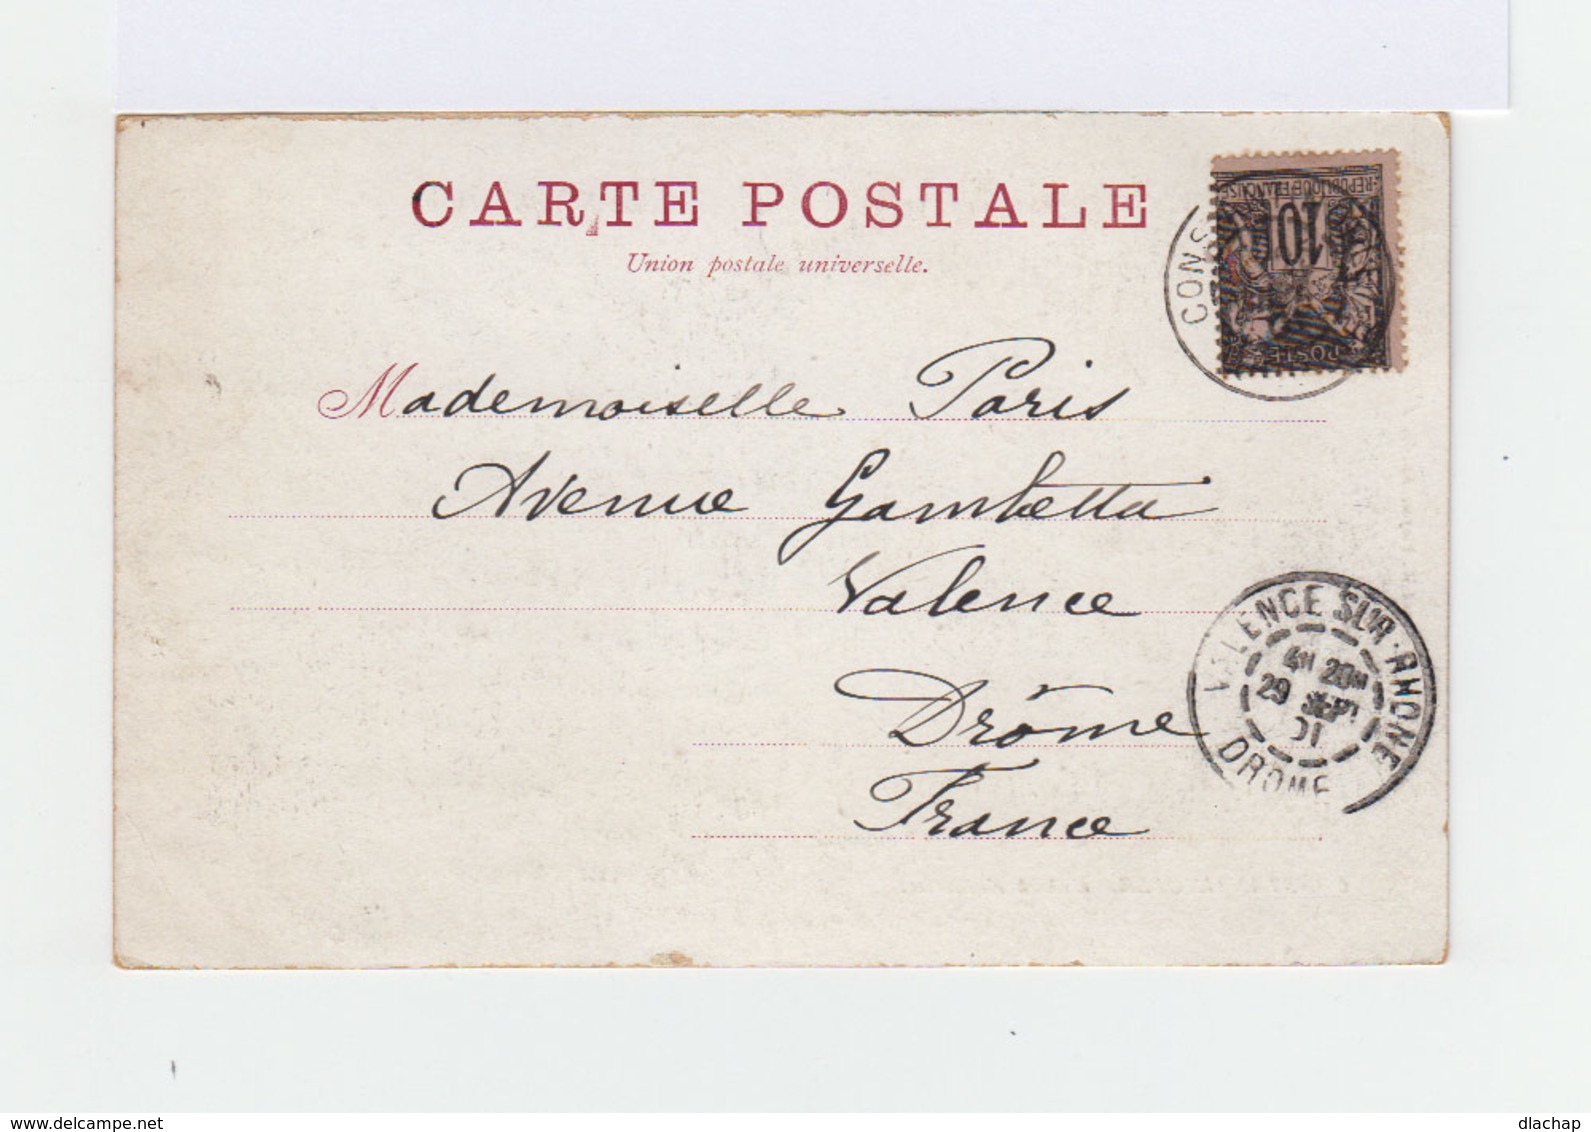 CARTE POSTALE
Union postale universelle.
CONS
REPUBLIQUE FRANÇAISE
10
POSTE
Mademoiselle Paris
Avenue Gambetta
Valence
Drôme
France
VALENCE SUR-RHONE
4H 20M
29 SEPT
01
DROME
www.delcampe.net
dlachap